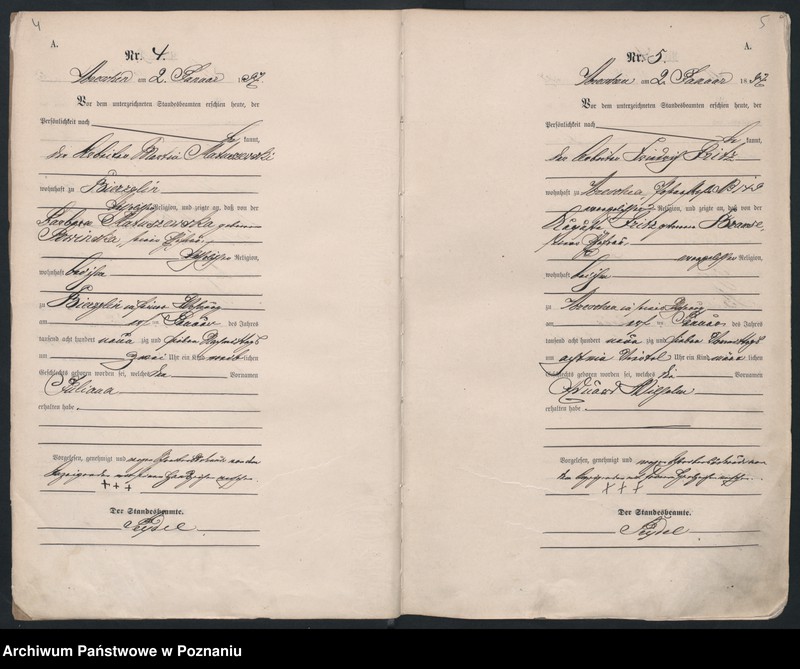 4
A.
Nr. 4.
Wreschen am 2. Januar 1897
Vor dem unterzeichneten Standesbeamten erschien heute, der
Persönlichkeit nach
be kannt,
der Arbeiter Martin Matuszewski
wohnhaft zu Bierzglin
Religion, und zeigte an, daß von der
Barbara Matuszewska geborenen
seiner Ehefrau,
katholischer Religion,
wohnhaft bei ihm
zu Bierzglin in seiner Wohnung
am Januar des Jahres
tausend acht hundert neun zig und sieben Vormittags
um zwei Uhr ein Kind weib lichen
Geschlechts geboren worden sei, welches den Vornamen
Juliana
erhalten habe.
Vorgelesen, genehmigt und wegen
+++
Der Standesbeamte.
Seydel
5
A.
Nr. 5.
Wreschen am 2. Januar 1897
Vor dem unterzeichneten Standesbeamten erschien heute, der
Persönlichkeit nach
be kannt,
der Arbeiter Friedrich Fritz
wohnhaft zu Wreschen,
evangelischer Religion, und zeigte an, daß von der
Auguste Fritz geborenen
seiner Ehefrau
evangelischer Religion,
wohnhaft bei ihm
zu Wreschen in seiner Wohnung
am Januar des Jahres
tausend acht hundert neun zig und sieben Vormittags
um Uhr ein Kind männ lichen
Geschlechts geboren worden sei, welches die Vornamen
Eduard Wilhelm
erhalten habe.
Vorgelesen, genehmigt und wegen
+++
Der Standesbeamte.
Seydel
Archiwum Państwowe w Poznaniu